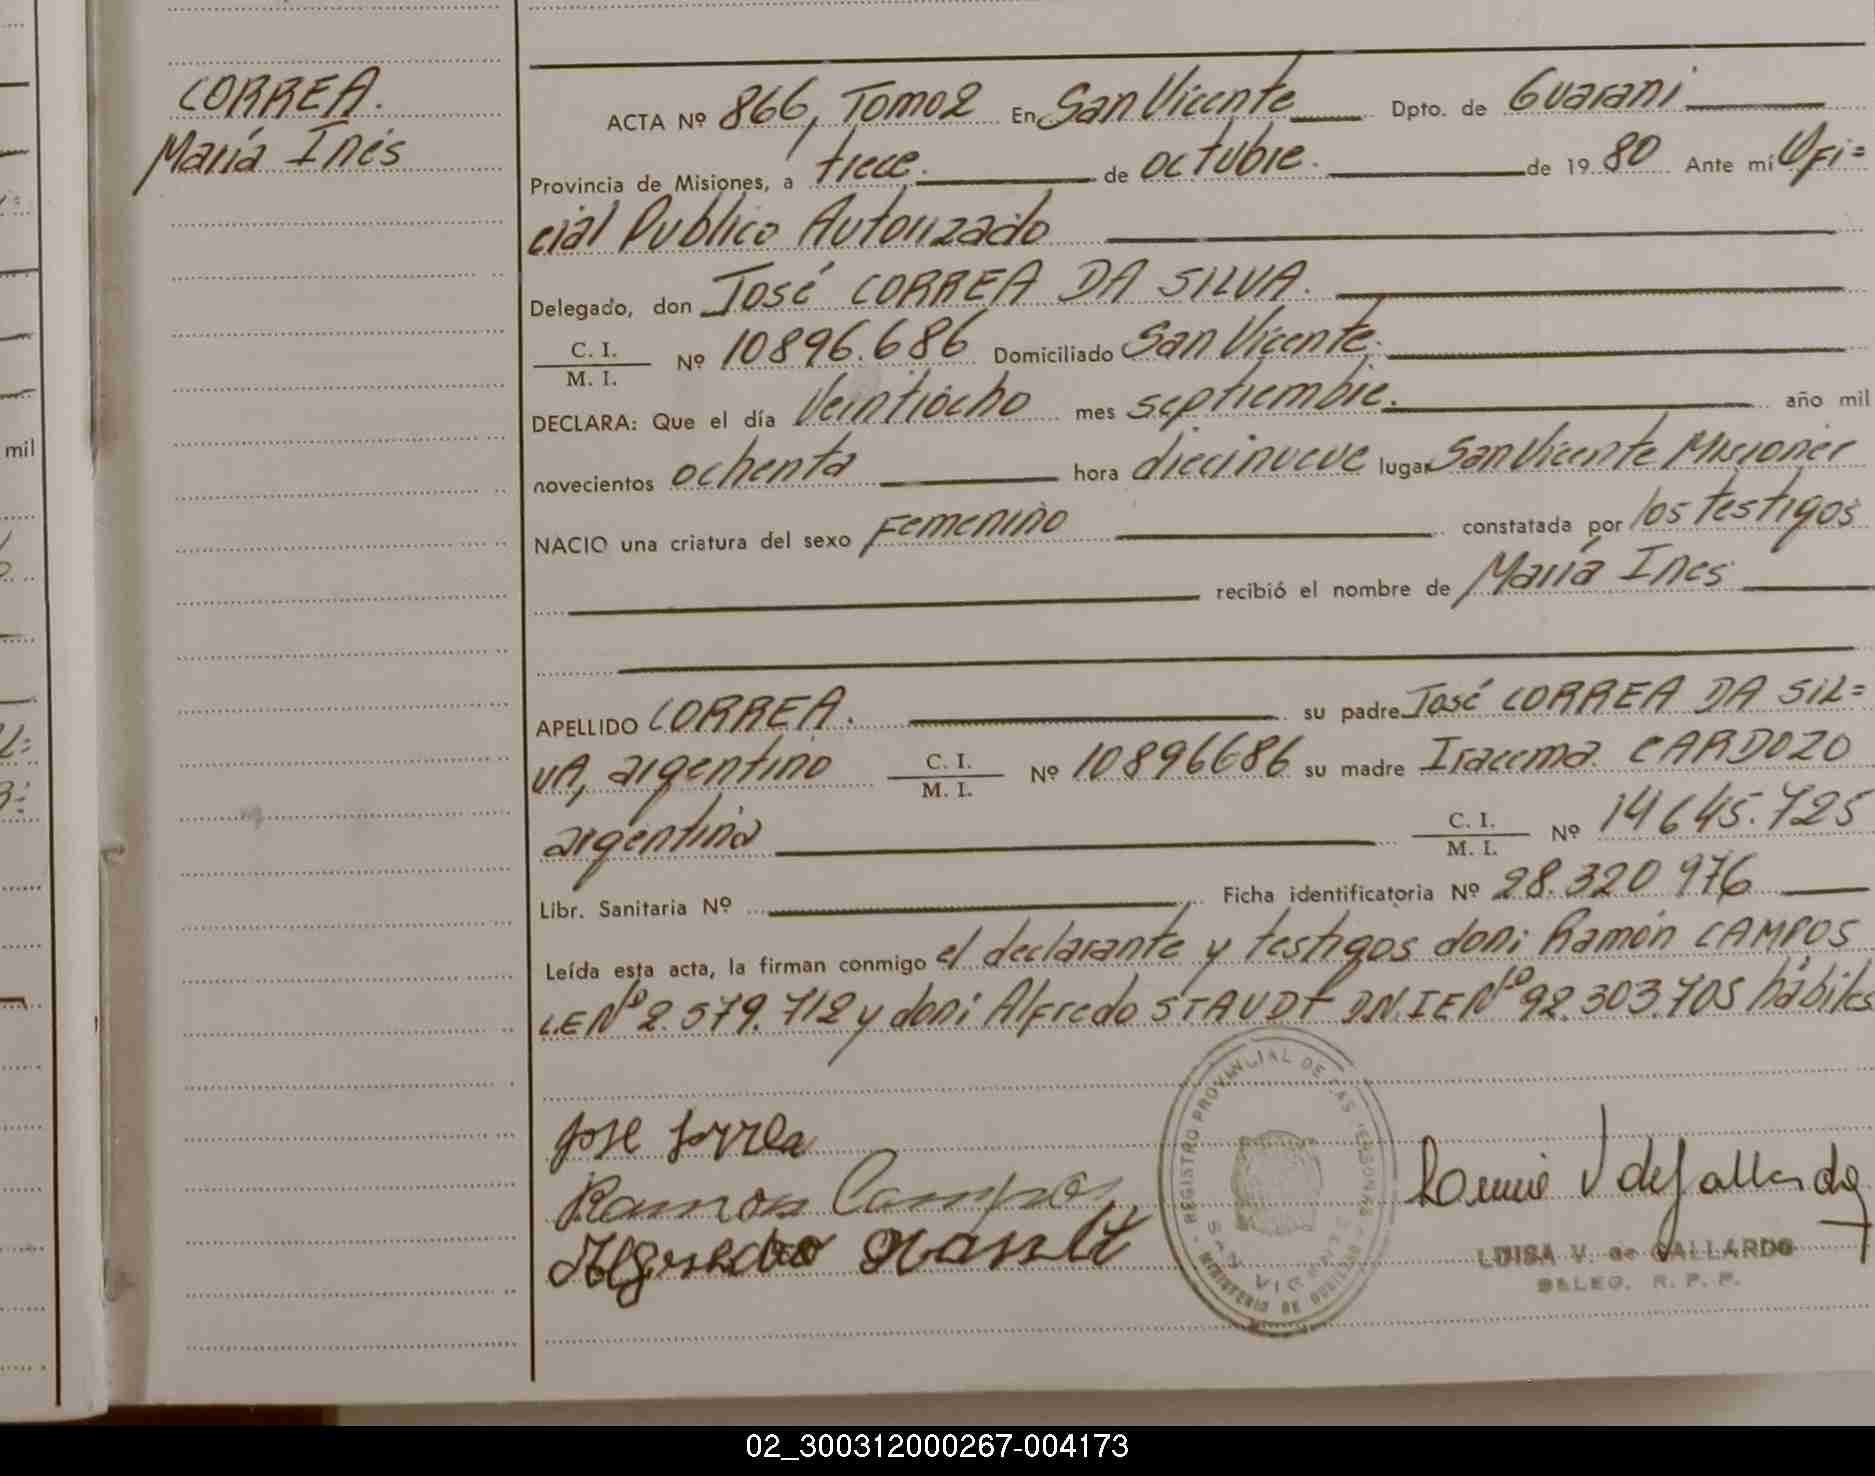 CORREA.
María Inés
ACTA Nº 866, Tomo 2 En San Vicente Dpto. de Guaraní
Provincia de Misiones, a trece. de octubre. de 19 80 Ante mí Ofi=
cial Publico Autorizado
Delegado, don José CORREA DA SILVA.
C. I.
M. I. Nº 10896.686 Domiciliado San Vicente.
DECLARA: Que el día Veintiocho mes septiembre. año mil
novecientos ochenta hora diecinueve lugar San Vicente Misiones
NACIO una criatura del sexo Femenino constatada por los testigos
recibió el nombre de María Ines
APELLIDO CORREA. su padre José CORREA DA SIL=
VA, argentino C. I.
M. I. Nº 10896686 su madre Iracema CARDOZO
argentina C. I.
M. I. Nº 14645.725
Libr. Sanitaria Nº Ficha identificatoria Nº 28.320 976
Leída esta acta, la firman conmigo el declarante y testigos don: Ramón CAMPOS
L.E Nº 2.579.712 y don: Alfredo STAUDT D.N.I E Nº 92.303.705 hábiles
José Correa
Ramon Campos
REGISTRO PROVINCIAL DE LAS PERSONAS
SAN VICENTE
MINISTERIO DE GOBIERNO
LUISA V. de GALLARDO
DELEG. R. P. P.
mil
02_300312000267-004173